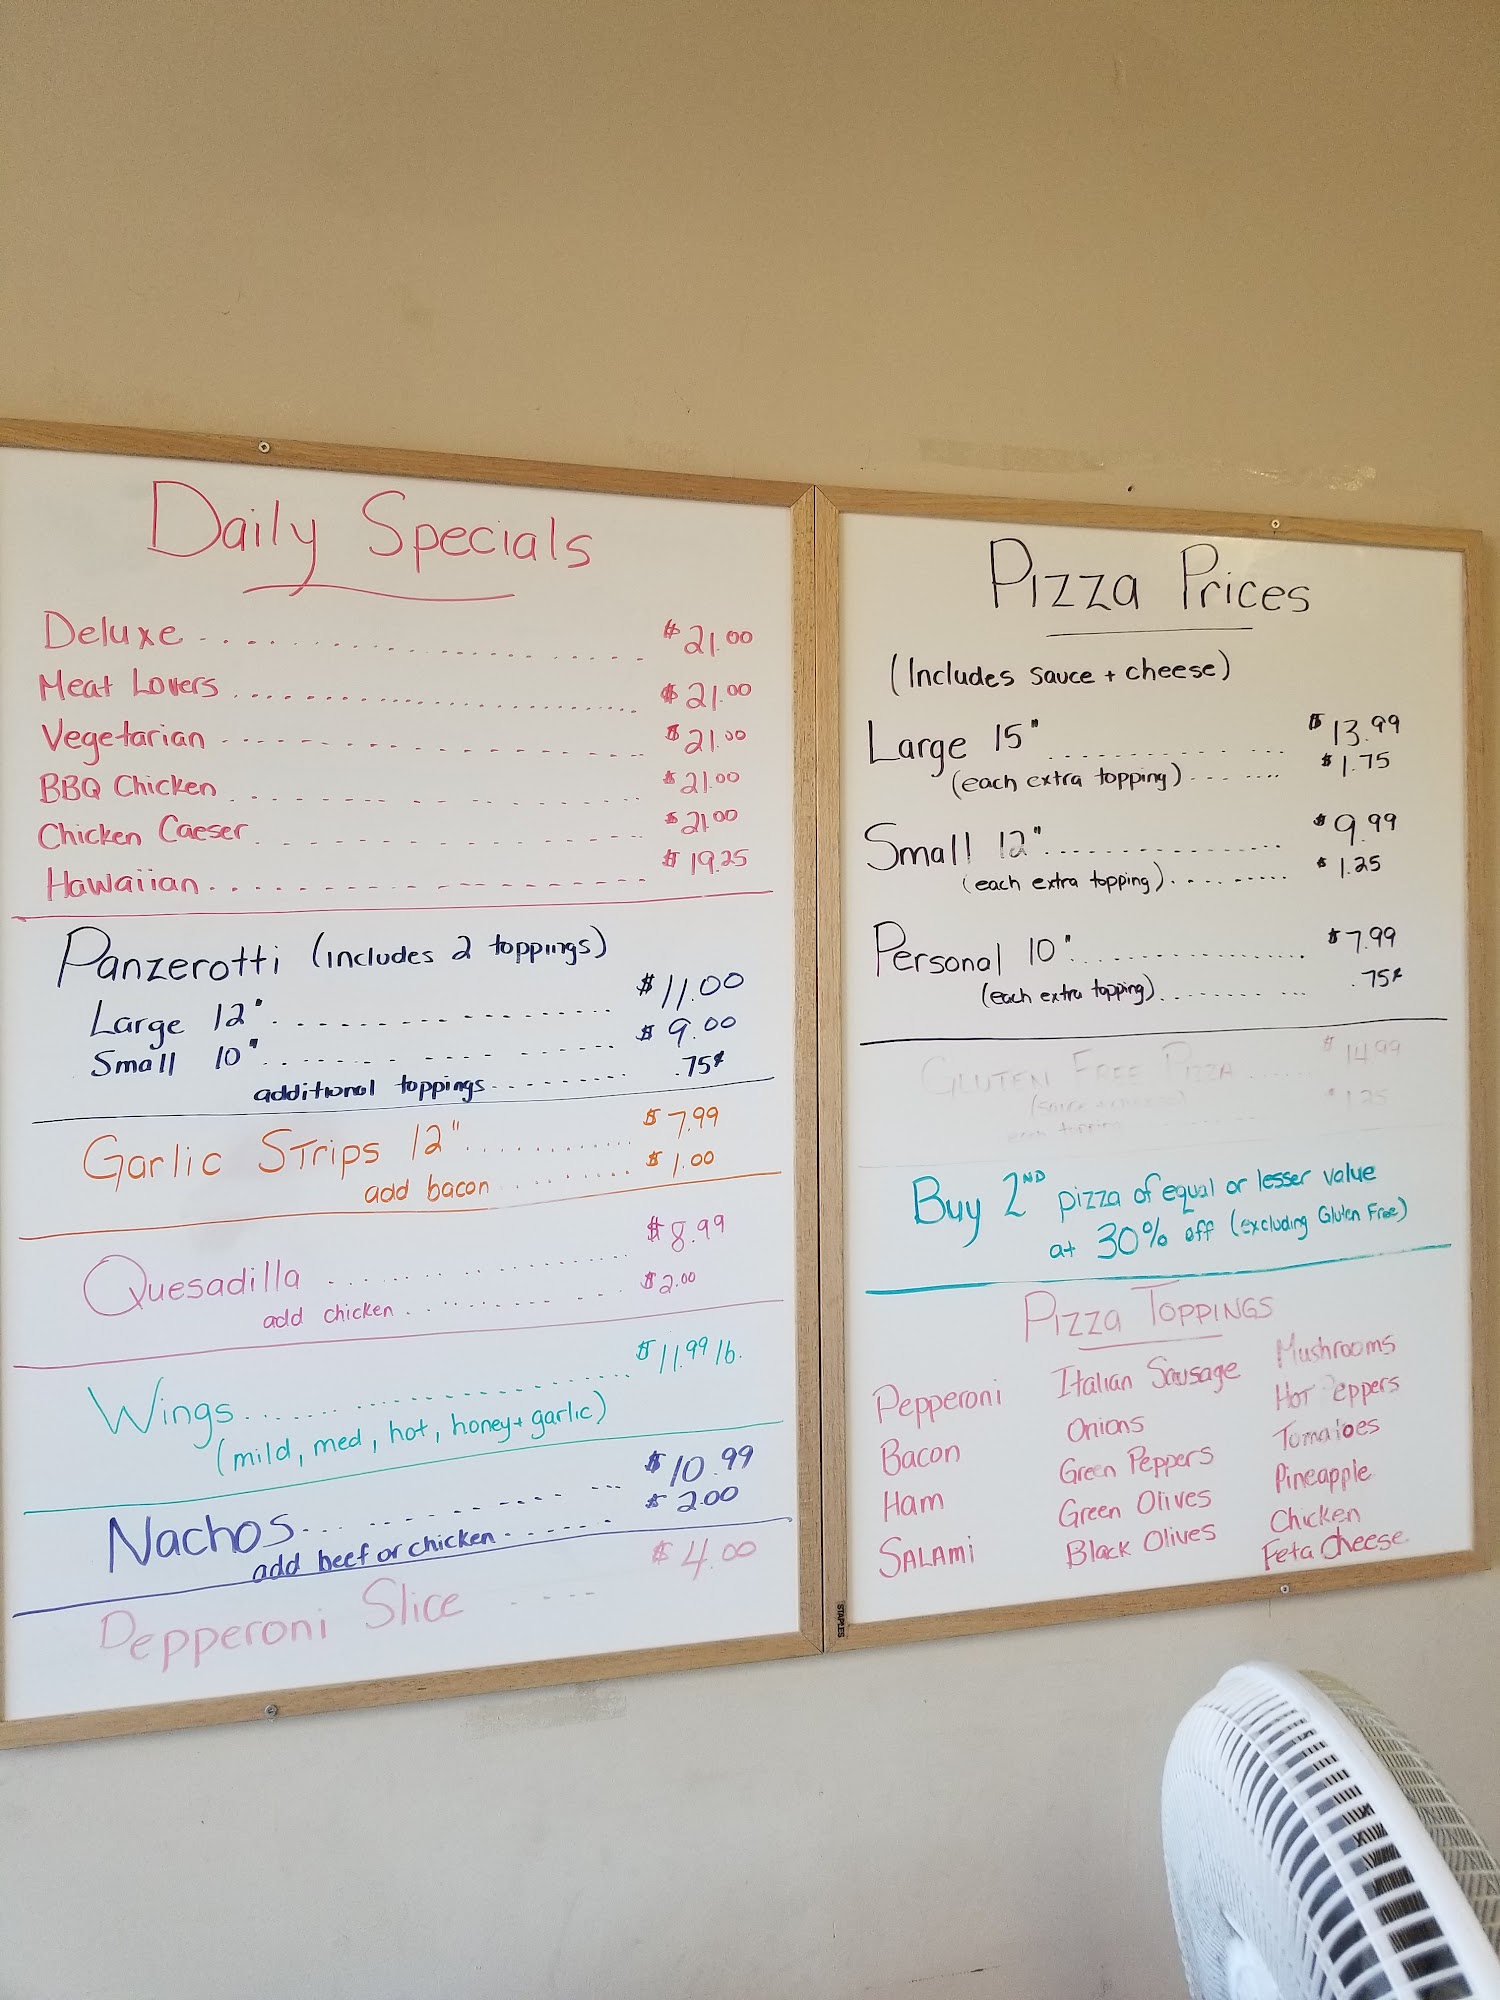 Daily Specials
Deluxe $21.00
Meat Lovers $21.00
Vegetarian $21.00
BBQ Chicken $21.00
Chicken Caeser $21.00
Hawaiian $19.25
Panzerotti (includes 2 toppings)
Large 12" $11.00
Small 10" $9.00
additional toppings .75¢
Garlic Strips 12" $7.99
add bacon $1.00
Quesadilla $8.99
add chicken $2.00
Wings $11.99 lb.
(mild, med, hot, honey + garlic)
Nachos $10.99
add beef or chicken $2.00
Pepperoni Slice $4.00
Pizza Prices
(Includes sauce + cheese)
Large 15" $13.99
(each extra topping) $1.75
Small 12" $9.99
(each extra topping) $1.25
Personal 10" $7.99
(each extra topping) .75¢
Gluten Free Pizza $14.99
$1.25
each topping
Buy 2ND pizza of equal or lesser value
at 30% off (excluding Gluten Free)
Pizza Toppings
Pepperoni
Bacon
Ham
Salami
Italian Sausage
Onions
Green Peppers
Green Olives
Black Olives
Mushrooms
Hot Peppers
Tomatoes
Pineapple
Chicken
Feta Cheese
STAPLES